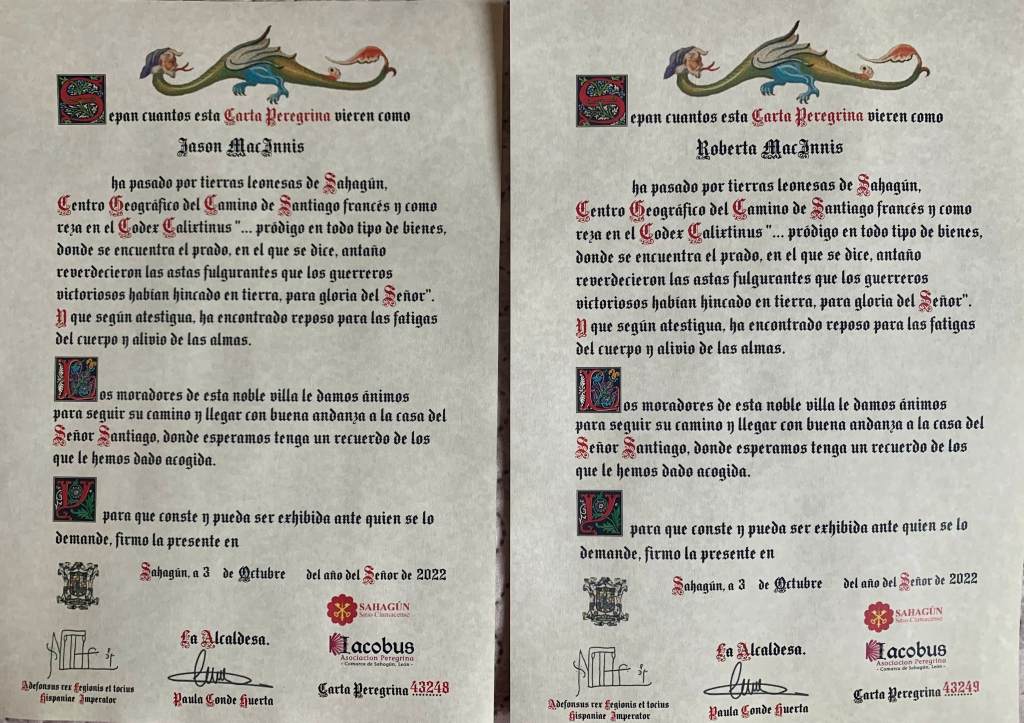 Sepan cuantos esta Carta Peregrina vieren como
Jason MacInnis
ha pasado por tierras leonesas de Sahagún,
Centro Geográfico del Camino de Santiago francés y como
reza en el Codex Calixtinus "... pródigo en todo tipo de bienes,
donde se encuentra el prado, en el que se dice, antaño
reverdecieron las astas fulgurantes que los guerreros
victoriosos habían hincado en tierra, para gloria del Señor".
Y que según atestigua, ha encontrado reposo para las fatigas
del cuerpo y alivio de las almas.
Los moradores de esta noble villa le damos ánimos
para seguir su camino y llegar con buena andanza a la casa del
Señor Santiago, donde esperamos tenga un recuerdo de los
que le hemos dado acogida.
Y para que conste y pueda ser exhibida ante quien se lo
demande, firmo la presente en
Sahagún, a 3 de Octubre del año del Señor de 2022
SAHAGÚN
Sitio Cluniacense
La Alcaldesa.
Iacobus
Asociacion Peregrina
- Comarca de Sahagún, León -
Adefonsus rex Legionis et tocius
Hispaniae Imperator
Paula Conde Huerta
Carta Peregrina 43248
Sepan cuantos esta Carta Peregrina vieren como
Roberta MacInnis
ha pasado por tierras leonesas de Sahagún,
Centro Geográfico del Camino de Santiago francés y como
reza en el Codex Calixtinus "... pródigo en todo tipo de bienes,
donde se encuentra el prado, en el que se dice, antaño
reverdecieron las astas fulgurantes que los guerreros
victoriosos habían hincado en tierra, para gloria del Señor".
Y que según atestigua, ha encontrado reposo para las fatigas
del cuerpo y alivio de las almas.
Los moradores de esta noble villa le damos ánimos
para seguir su camino y llegar con buena andanza a la casa del
Señor Santiago, donde esperamos tenga un recuerdo de los
que le hemos dado acogida.
Y para que conste y pueda ser exhibida ante quien se lo
demande, firmo la presente en
Sahagún, a 3 de Octubre del año del Señor de 2022
SAHAGÚN
Sitio Cluniacense
La Alcaldesa.
Iacobus
Asociacion Peregrina
- Comarca de Sahagún, León -
Adefonsus rex Legionis et tocius
Hispaniae Imperator
Paula Conde Huerta
Carta Peregrina 43249